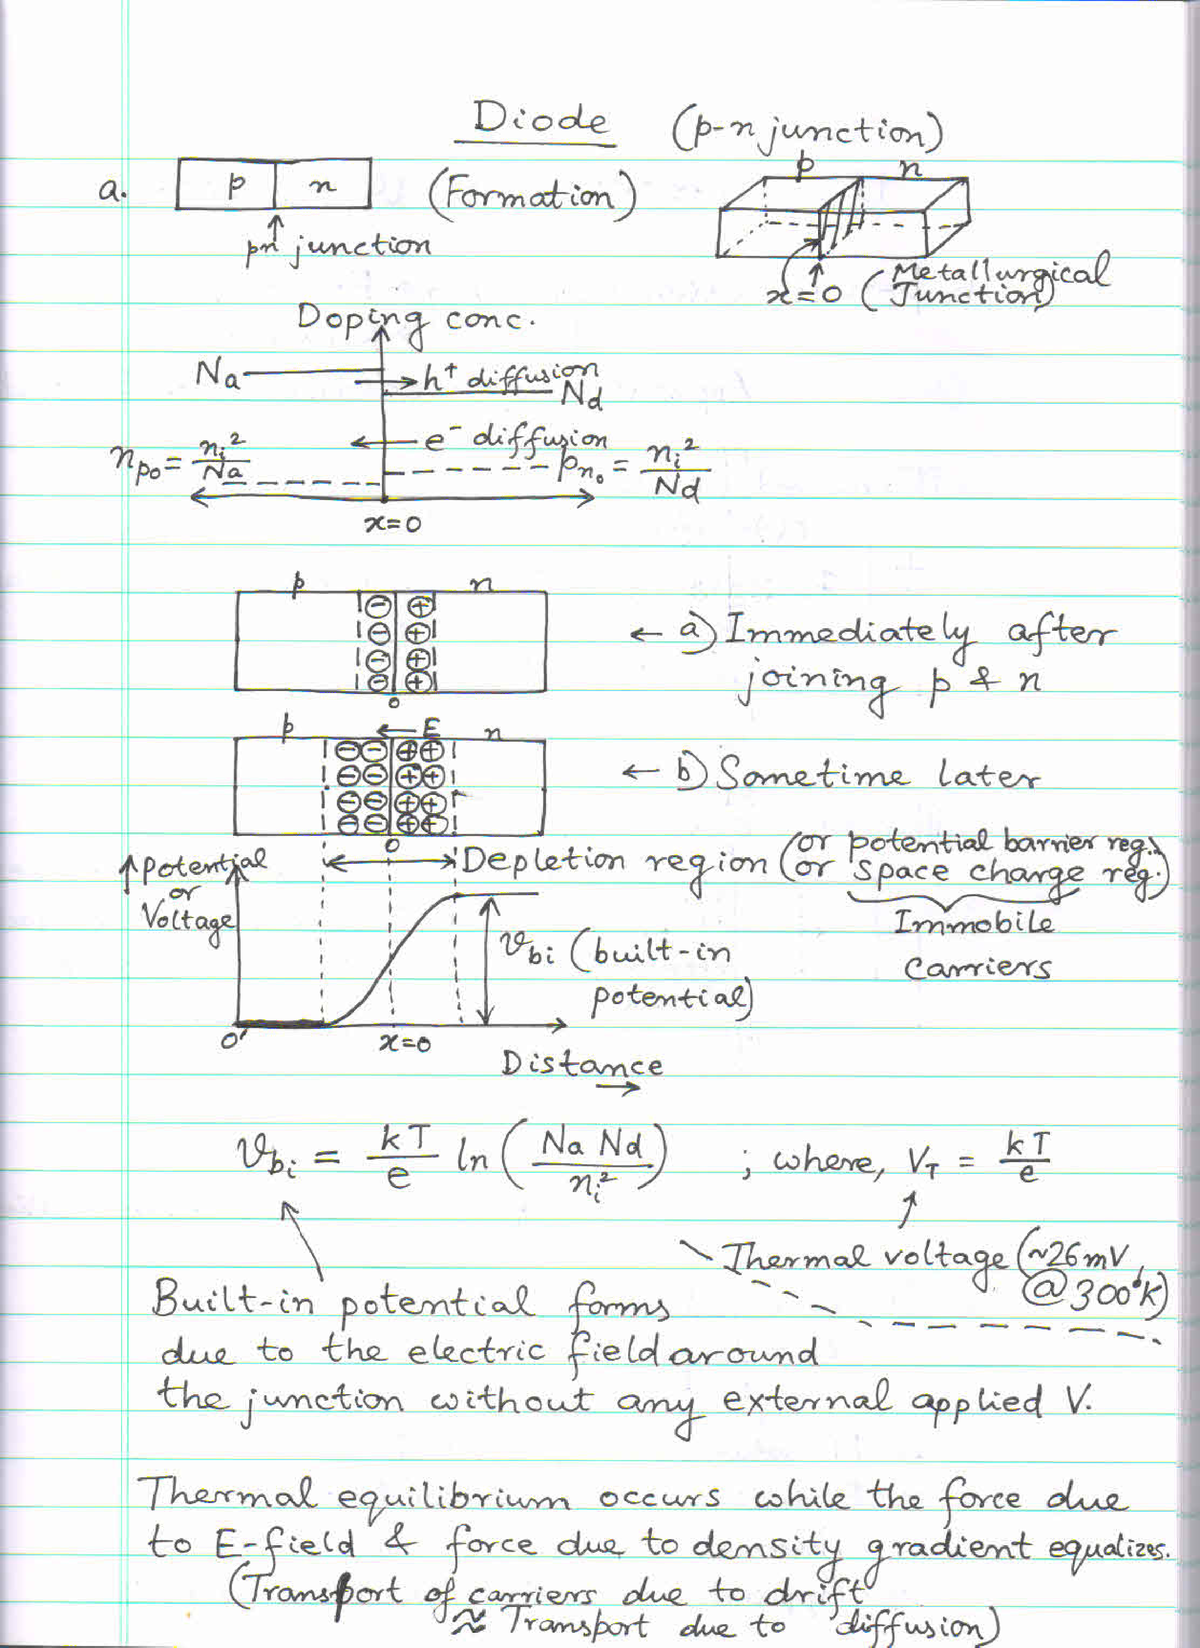 Diode (p-n junction)
a. p n (Formation) p n
pn junction
x=0 (Metallurgical
Junction)
Doping conc.
Na → h⁺ diffusion
Nd
← e⁻ diffusion
n_po = n_i²/Na p_no = n_i²/Nd
x=0
p n
⊖ ⊕
⊖ ⊕
⊖ ⊕
⊖ ⊕
0
← a) Immediately after
joining p & n
p ← E n
⊖⊖ ⊕⊕
⊖⊖ ⊕⊕
⊖⊖ ⊕⊕
⊖⊖ ⊕⊕
0
← b) Sometime later
↑ Potential
or
Voltage
Depletion region (or potential barrier reg.)
(or space charge reg.)
Immobile
Carriers
V_bi (built-in
potential)
0 x=0
Distance
→
V_bi = kT/e ln (Na Nd / n_i²) ; where, V_T = kT/e
Thermal voltage (~26mV,
@300°K)
Built-in potential forms
due to the electric field around
the junction without any external applied V.
Thermal equilibrium occurs while the force due
to E-field & force due to density gradient equalizes.
(Transport of carriers due to drift
≈ Transport due to diffusion)